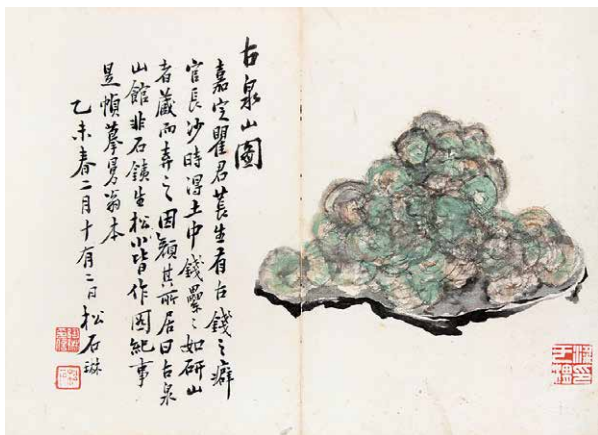 古泉山圖
嘉定瞿君萇生有古錢之癖
官長沙時得土中錢壘之如研山
者藏而弆之因顏其所居曰古泉
山館非石鐵生松小皆作圖紀事
是幀摹曼翁本
乙未春二月十有二日松石琳